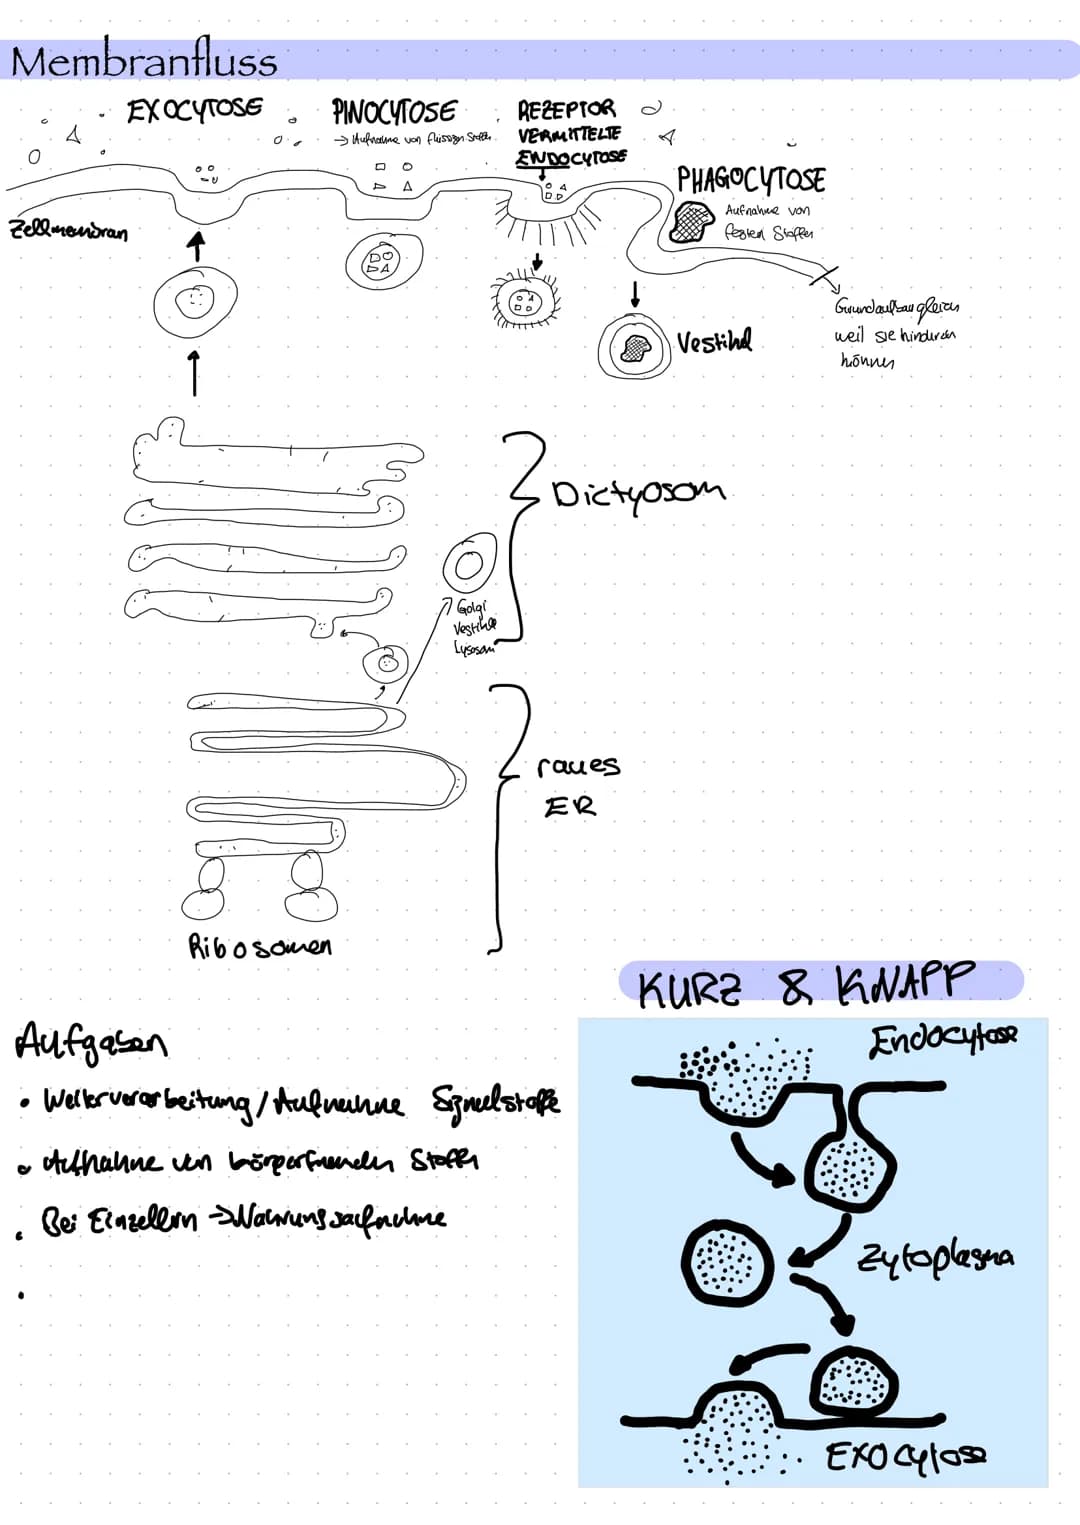 Membranfluss
EXOCYTOSE
PINOCYTOSE
→ Aufnahme von flüssigen Stoffen
REZEPTOR
VERMITTELTE
ENDOCYTOSE
PHAGOCYTOSE
Aufnahme von
festen Stoffen
Zellmembran
Vestikel
Grundaufbau gleich
weil sie hinduren
können
Dictyosom
Golgi
Vestikel
Lysosom
raues
ER
Ribosomen
KURZ & KNAPP
Endocytose
Zytoplasma
EXOcytose
Aufgaben
• Weiterverarbeitung/Aufnahme Signalstoffe
• Aufnahme von körperfremden Stoffen
• Bei Einzellern → Nahrungsaufnahme
•